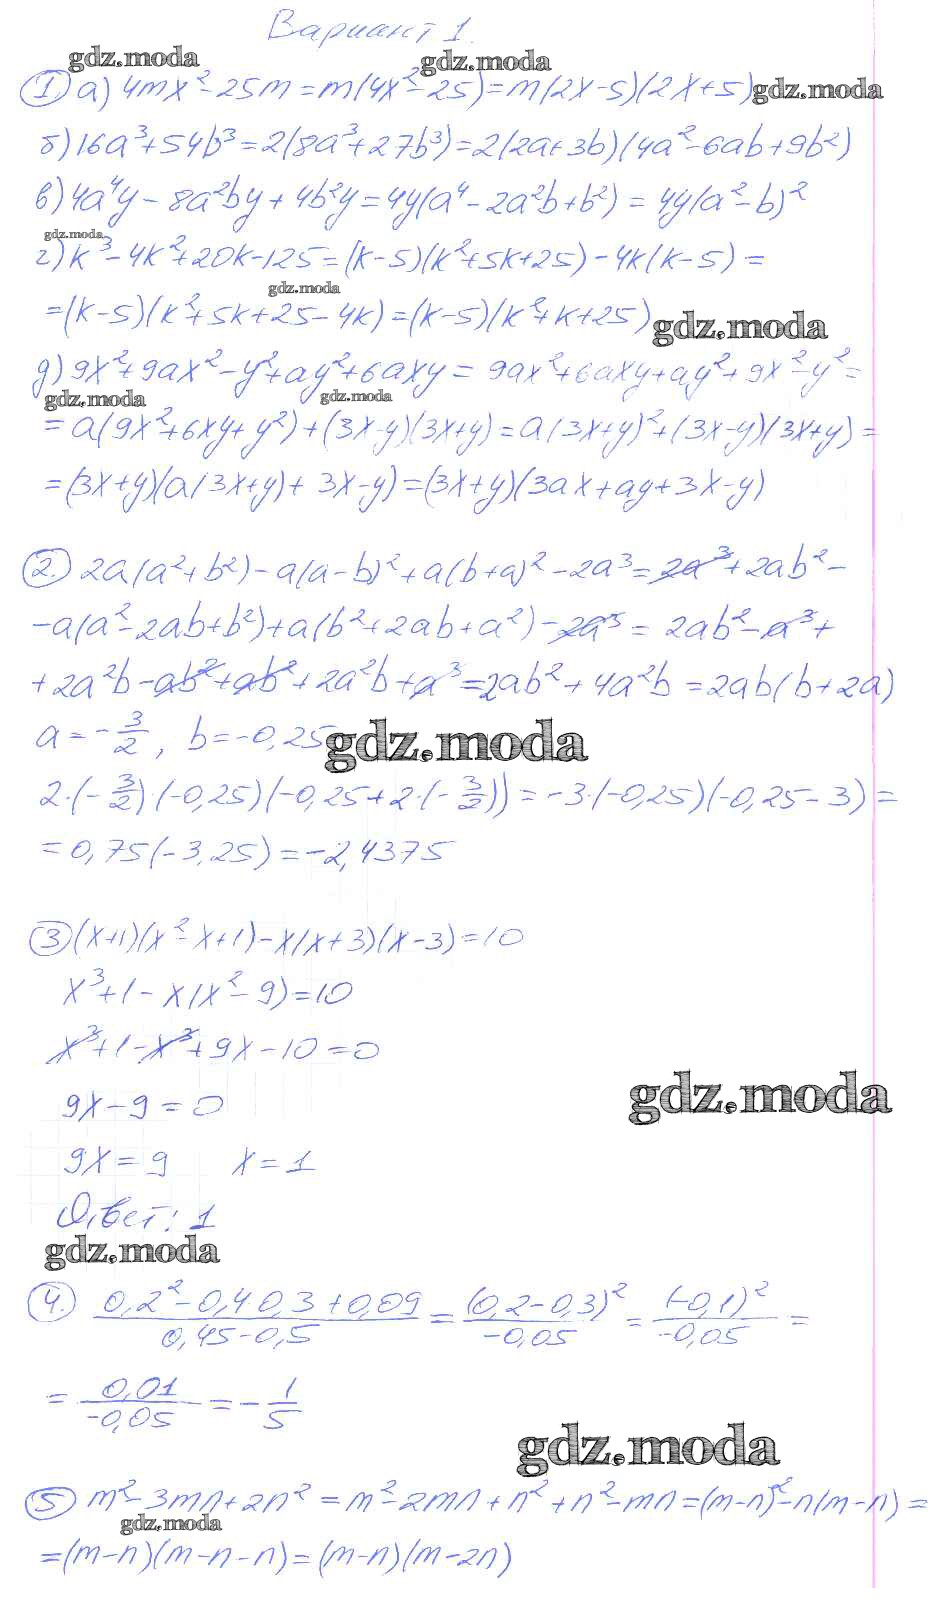 Вариант 1.
gdz.moda gdz.moda
① а) 4mx² - 25m = m(4x² - 25) = m(2x-5)(2x+5) gdz.moda
б) 16a³+54b³ = 2(8a³+27b³) = 2(2a+3b)(4a²-6ab+9b²)
в) 4a⁴y - 8a²by + 4b²y = 4y(a⁴ - 2a²b+b²) = 4y(a²-b)²
gdz.moda
г) k³ - 4k²+20k-125 = (k-5)(k²+5k+25) - 4k(k-5) =
gdz.moda
= (k-5)(k²+5k+25-4k) = (k-5)(k²+k+25) gdz.moda
д) 9x²+9ax² - y²+ay²+6axy = 9ax²+6axy+ay²+9x²-y² =
gdz.moda gdz.moda
= a(9x²+6xy+y²)+(3x-y)(3x+y) = a(3x+y)²+(3x-y)(3x+y) =
= (3x+y)(a(3x+y)+3x-y) = (3x+y)(3ax+ay+3x-y)
②. 2a(a²+b²) - a(a-b)²+a(b+a)² - 2a³ = 2a³+2ab² -
- a(a²-2ab+b²)+a(b²+2ab+a²) - 2a³ = 2ab² - a³ +
+ 2a²b - ab²+ab²+2a²b+a³ = 2ab²+4a²b = 2ab(b+2a)
a = - 3/2, b = -0,25 gdz.moda
2·(- 3/2)(-0,25)(-0,25+2·(- 3/2)) = -3·(-0,25)(-0,25-3) =
= 0,75(-3,25) = -2,4375
③ (x+1)(x²-x+1)-x(x+3)(x-3) = 10
x³+1 - x(x²-9) = 10
x³+1-x³+9x-10 = 0
9x-9 = 0 gdz.moda
9x = 9 x = 1
Ответ: 1
gdz.moda
④. (0,2² - 0,4 0,3 + 0,09)/(0,45-0,5) = (0,2-0,3)²/(-0,05) = (-0,1)²/(-0,05) =
= 0,01/(-0,05) = - 1/5
gdz.moda
⑤ m²-3mn+2n² = m²-2mn+n²+n²-mn = (m-n)²-n(m-n) =
gdz.moda
= (m-n)(m-n-n) = (m-n)(m-2n)